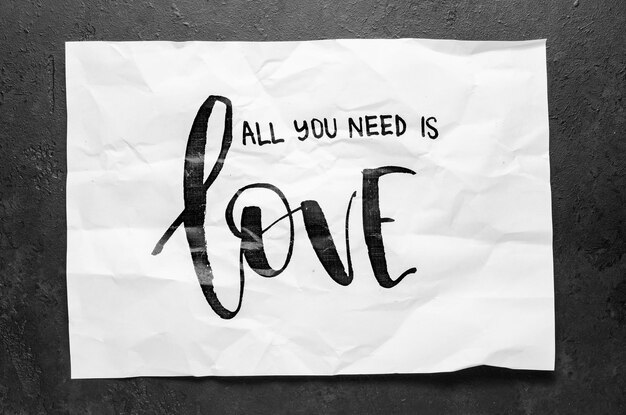 ALL YOU NEED IS
LOVE